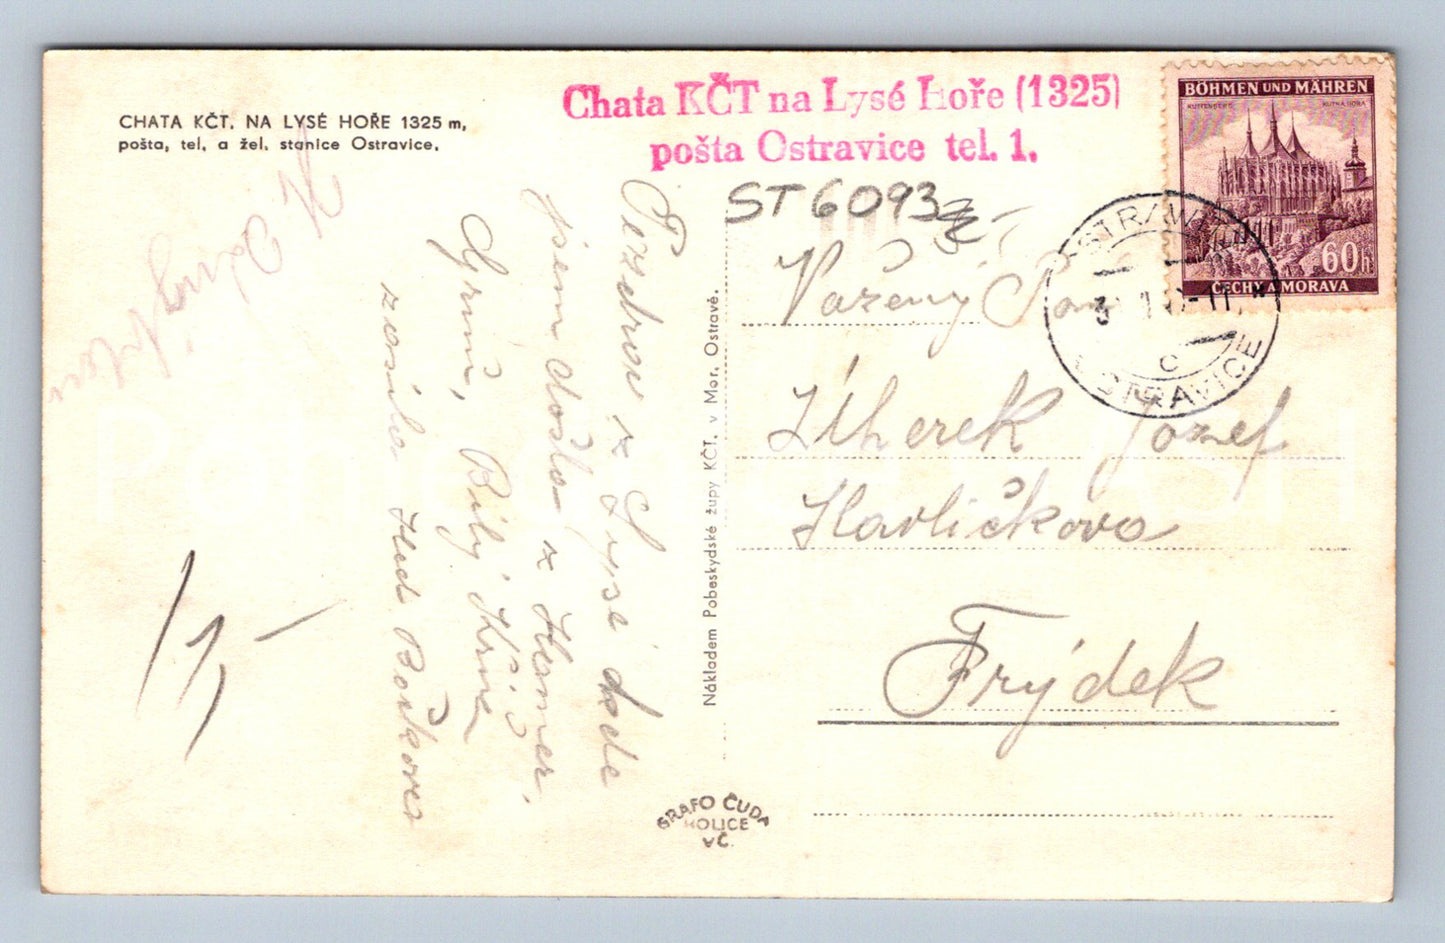 CHATA KČT. NA LYSÉ HOŘE 1325 m,
pošta, tel. a žel. stanice Ostravice.
Chata KČT na Lysé Hoře (1325)
pošta Ostravice tel. 1.
ST6093
BÖHMEN UND MÄHREN
KUTTENBERG KUTNÁ HORA
60h
ČECHY A MORAVA
OSTRAVICE
Pozdrav z Lysé
jsem došla z Hamer,
Grůň, Bílý Kříž
zasílá
Nákladem Pobeskydské župy KČT. v Mor. Ostravě.
Vážený Pan
Uherek Jozef
Havlíčkova
Frýdek
GRAFO ČUDA
HOLICE
v Č.